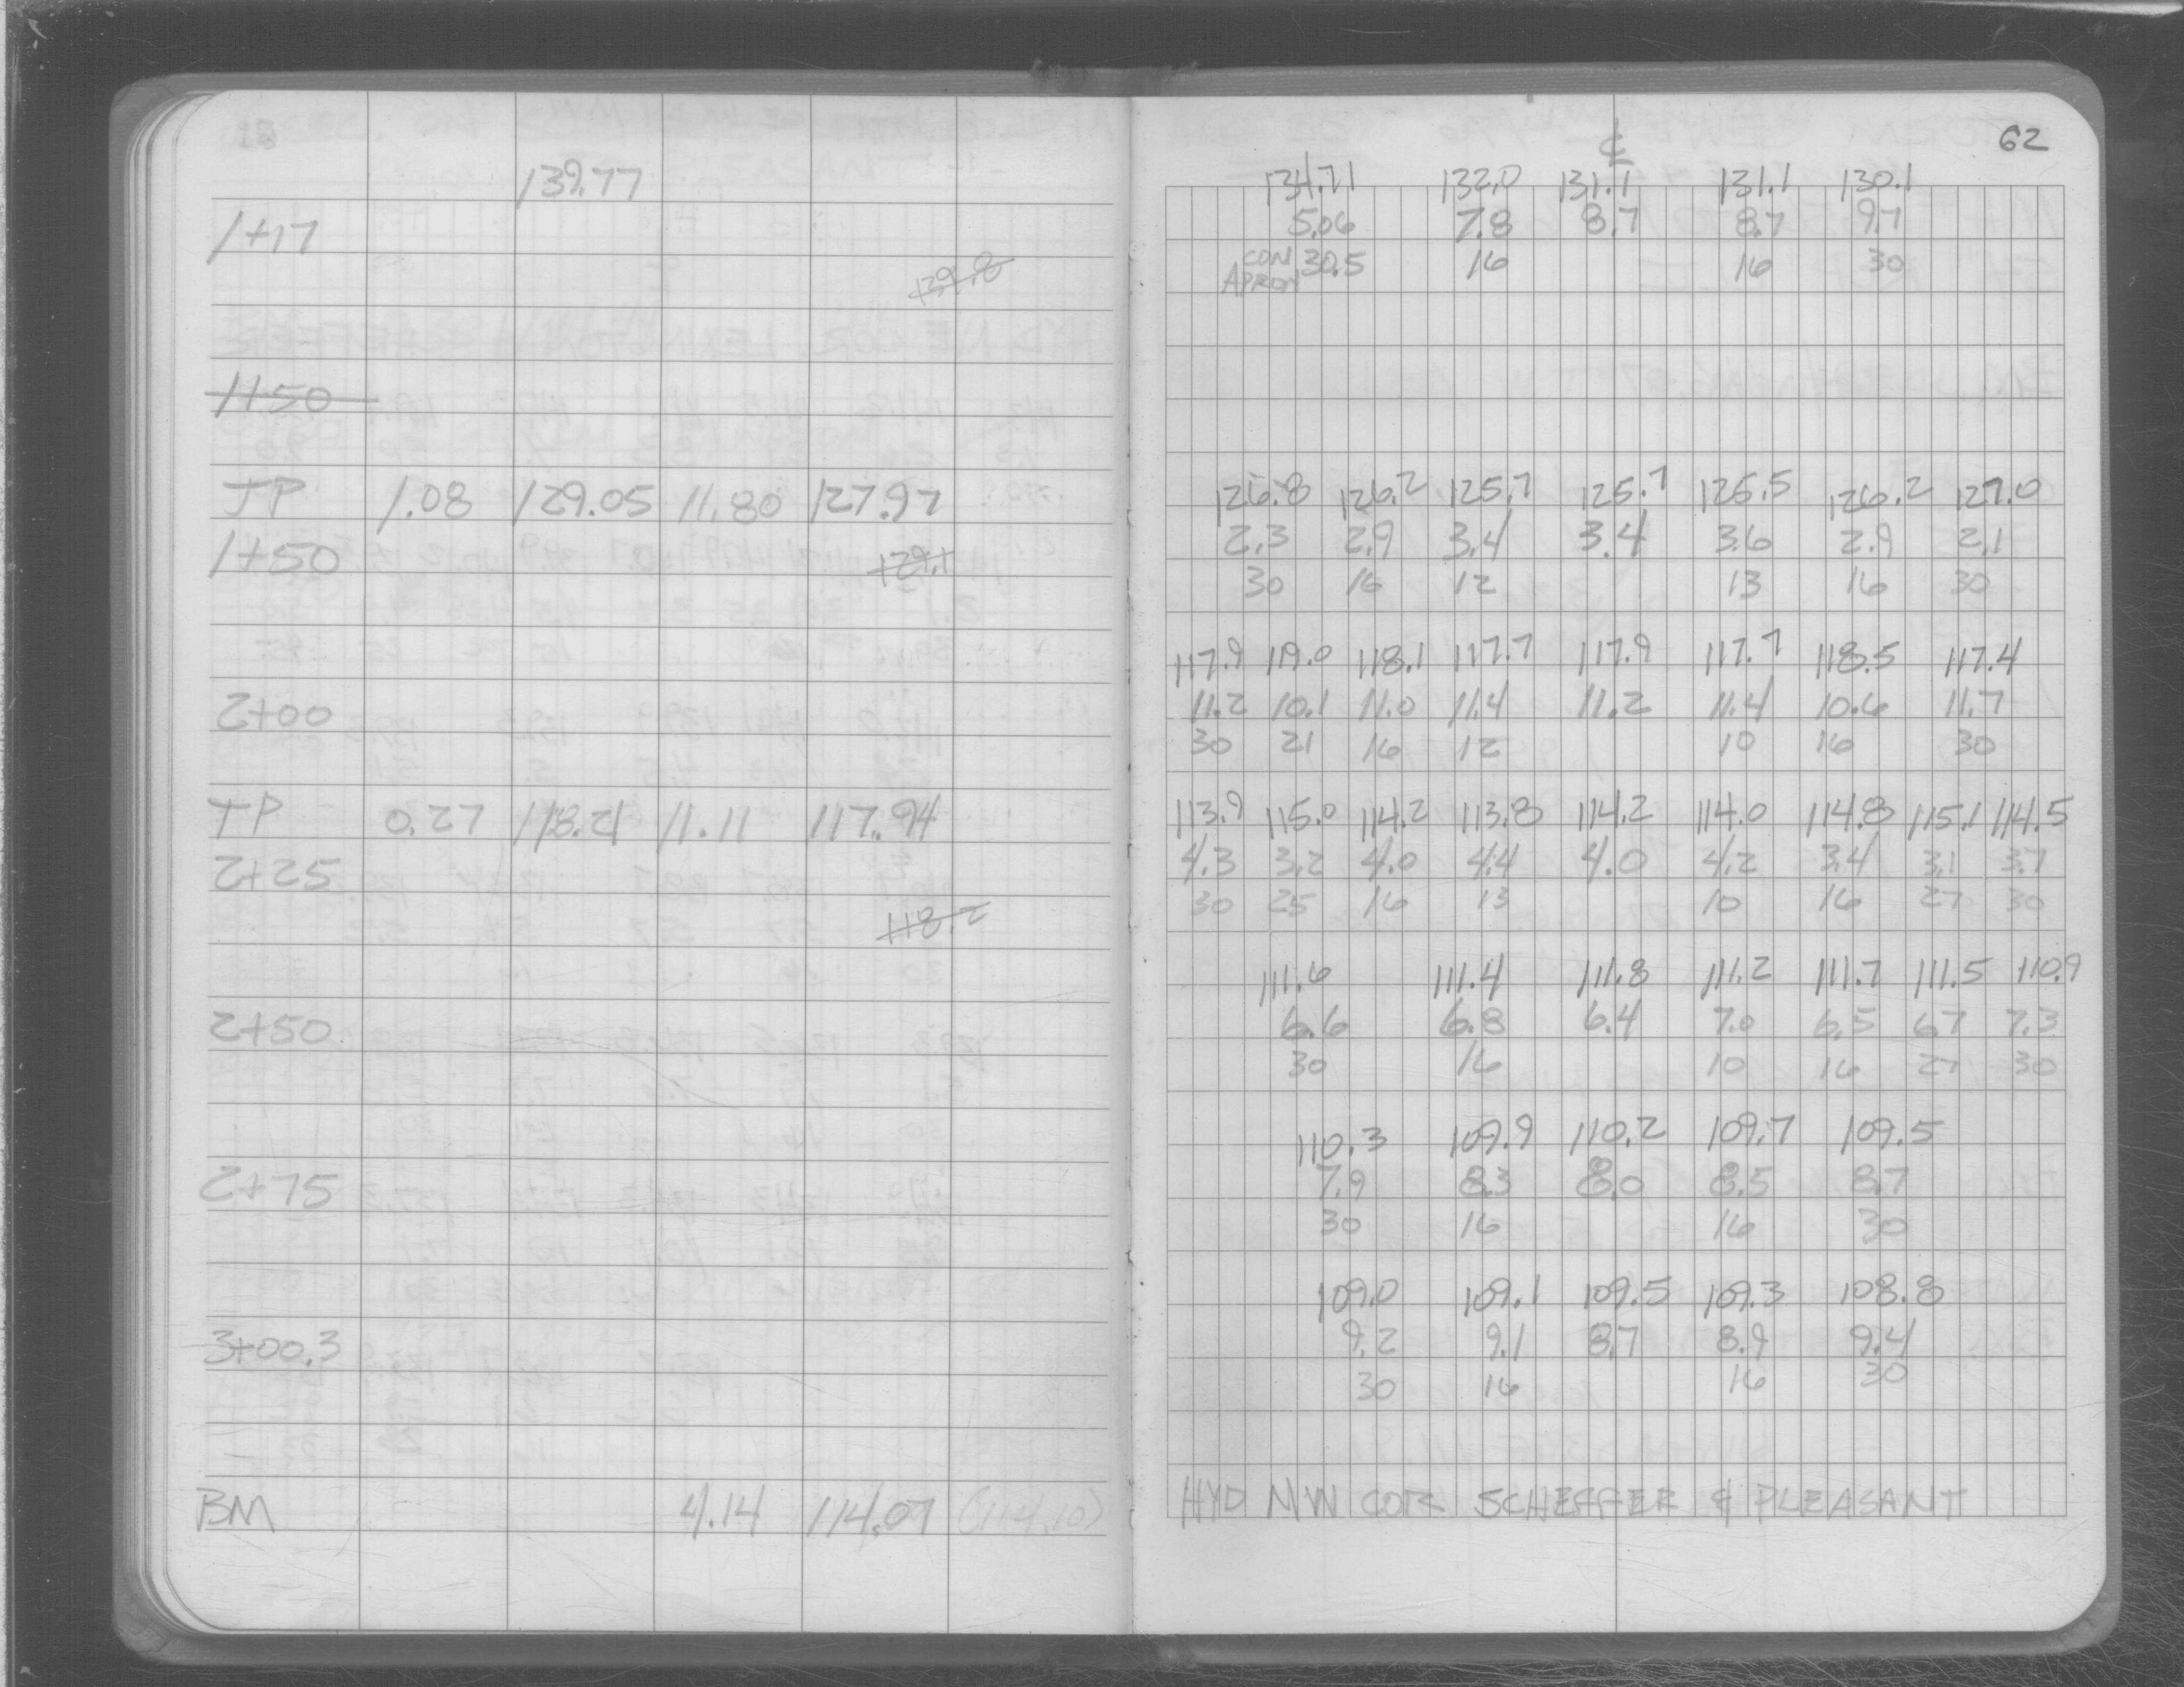 139.77
1+17
139.8
1+50
TP 1.08 129.05 11.80 127.97
1+50
129.1
2+00
TP 0.27 118.21 11.11 117.94
2+25
118.2
2+50
2+75
3+00.3
BM 4.14 114.07 (114.10)
62
℄
134.71 132.0 131.1 131.1 130.1
5.06 7.8 8.7 8.7 9.7
CON APRON 30.5 16 16 30
126.8 126.2 125.7 125.7 125.5 126.2 127.0
2.3 2.9 3.4 3.4 3.6 2.9 2.1
30 16 12 13 16 30
117.9 119.0 118.1 117.7 117.9 117.7 118.5 117.4
11.2 10.1 11.0 11.4 11.2 11.4 10.6 11.7
30 21 16 12 10 16 30
113.9 115.0 114.2 113.8 114.2 114.0 114.8 115.1 114.5
4.3 3.2 4.0 4.4 4.0 4.2 3.4 3.1 3.7
30 25 16 13 10 16 27 30
111.6 111.4 111.8 111.2 111.7 111.5 110.9
6.6 6.8 6.4 7.0 6.5 6.7 7.3
30 16 10 16 27 30
110.3 109.9 110.2 109.7 109.5
7.9 8.3 8.0 8.5 8.7
30 16 16 30
109.0 109.1 109.5 109.3 108.8
9.2 9.1 8.7 8.9 9.4
30 16 16 30
HYD NW COR SCHEFFER & PLEASANT